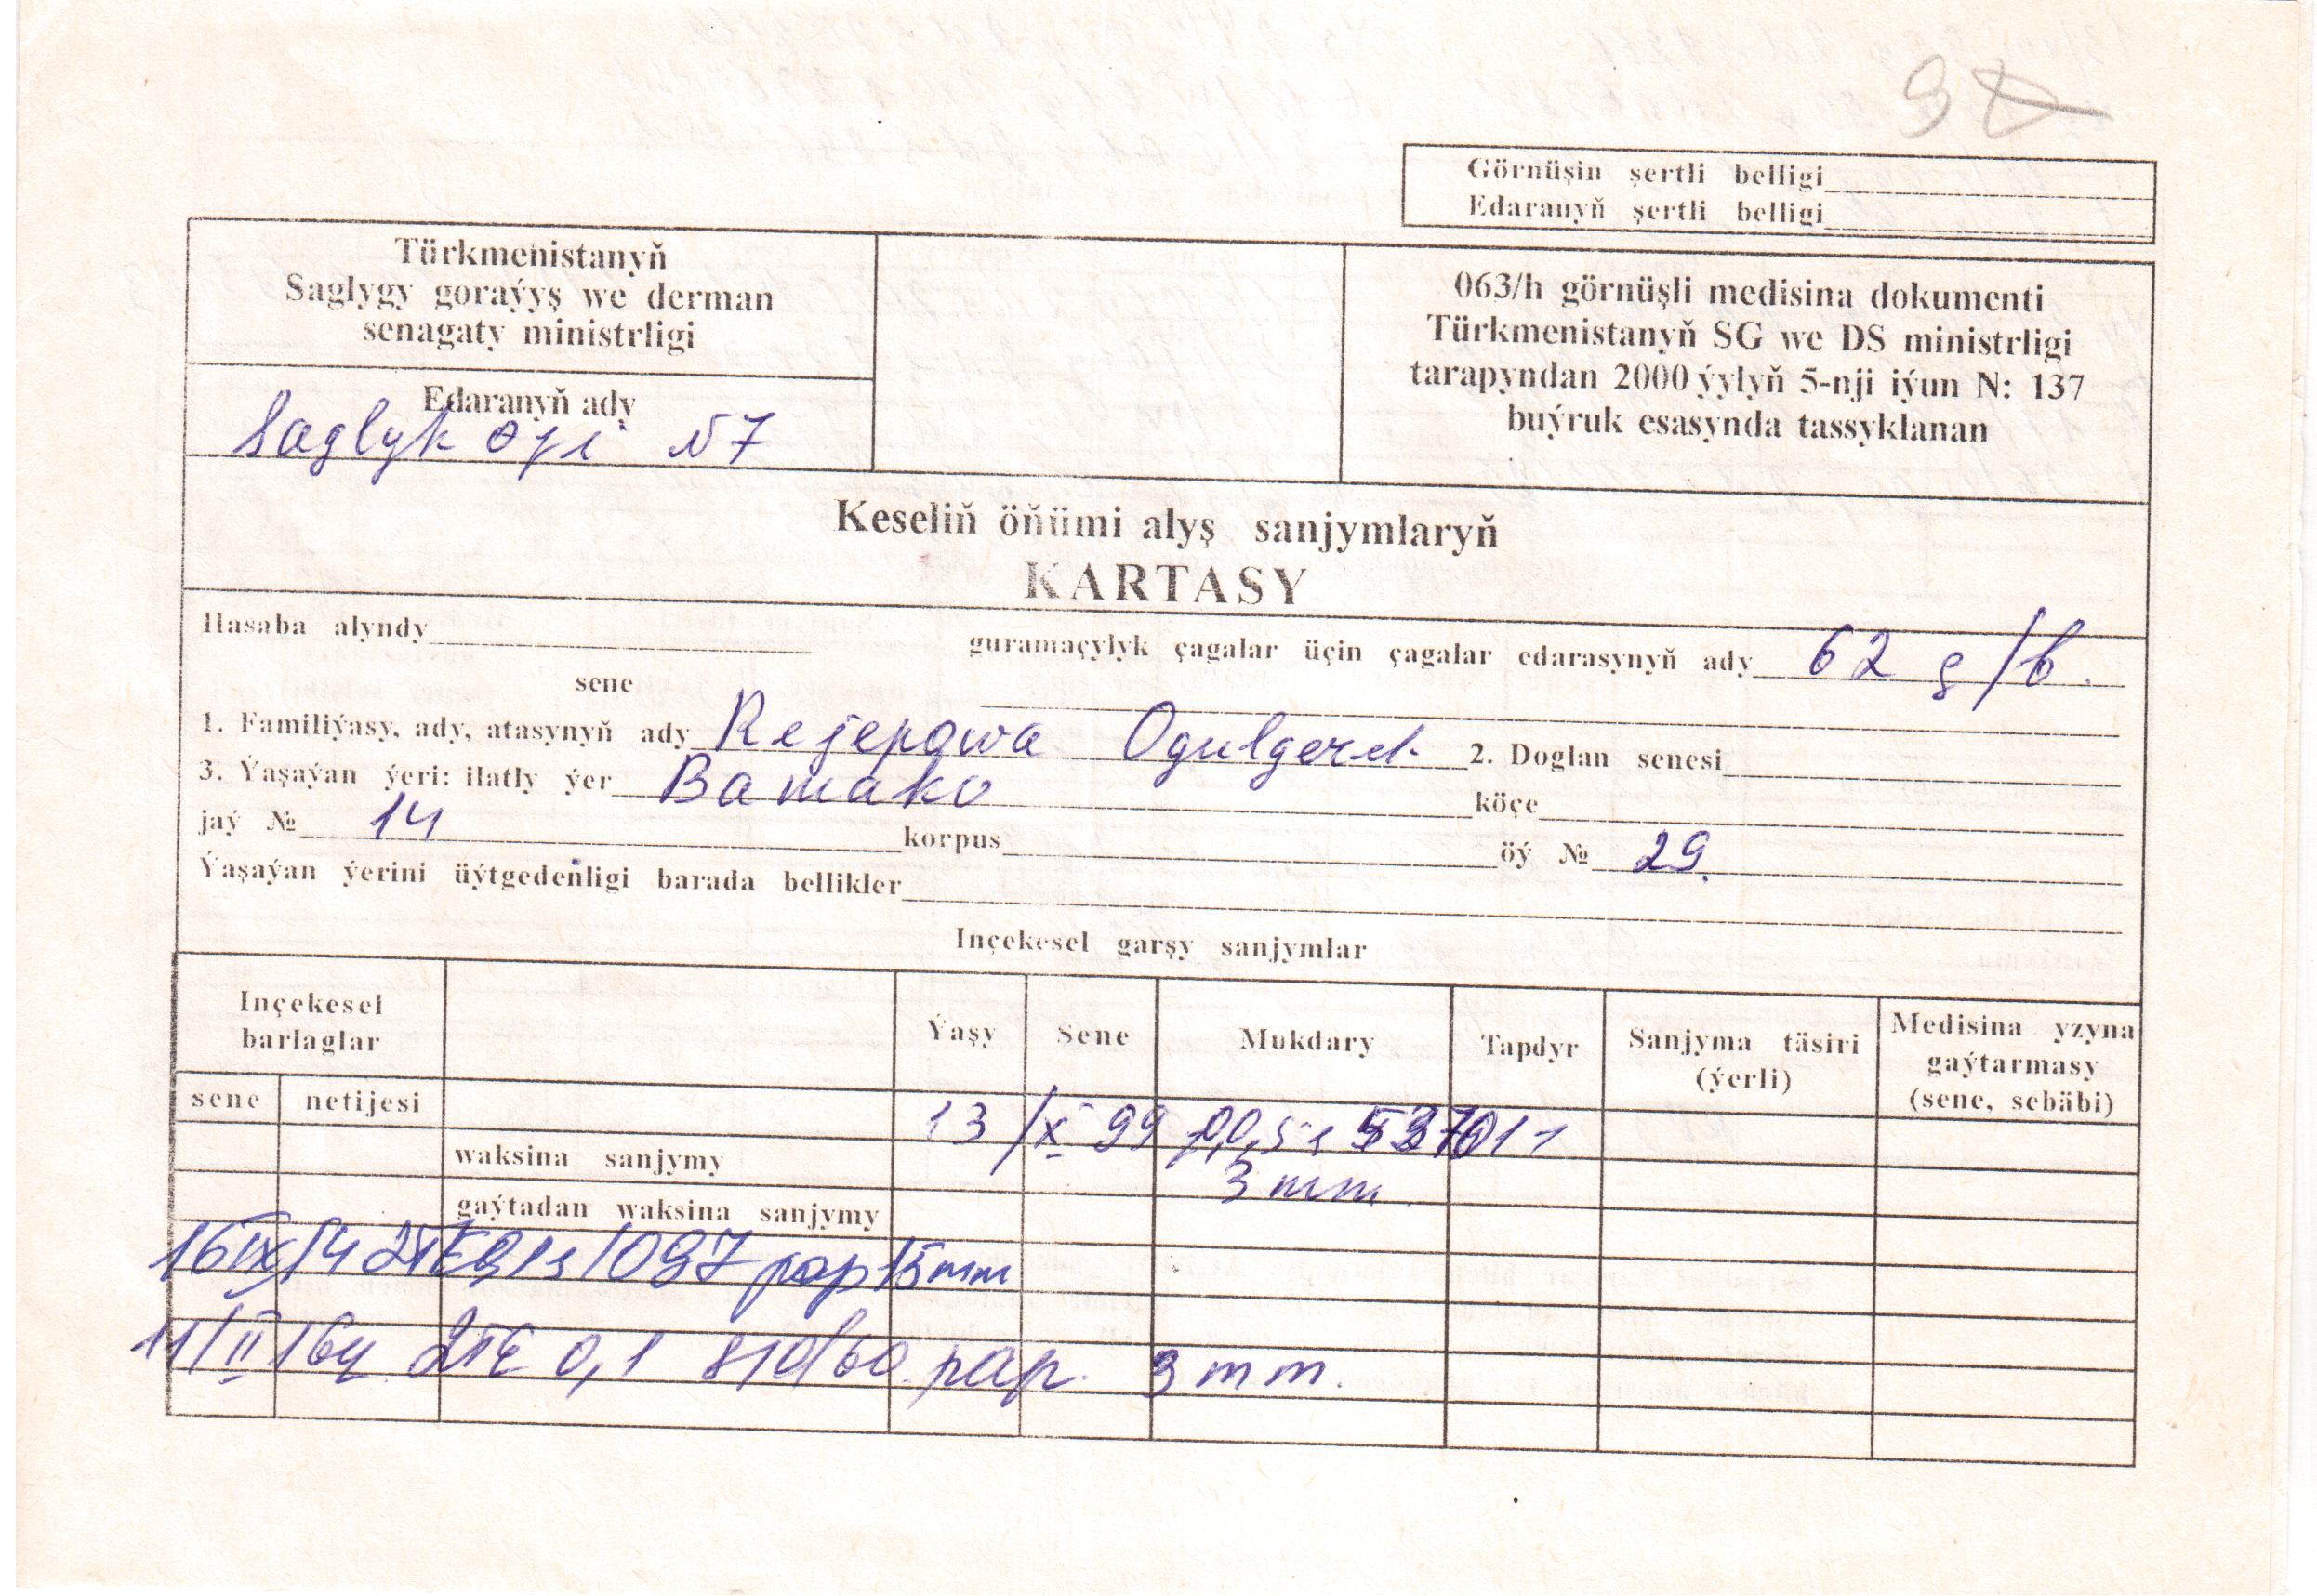 Görnüşin şertli belligi
Edaranyň şertli belligi
Türkmenistanyň
Saglygy goraýyş we derman
senagaty ministrligi
Edaranyň ady
Saglyk öýi N7
063/h görnüşli medisina dokumenti
Türkmenistanyň SG we DS ministrligi
tarapyndan 2000 ýylyň 5-nji iýun N: 137
buýruk esasynda tassyklanan
Keseliň öňümi alyş sanjymlaryň
KARTASY
Hasaba alyndy
guramaçylyk çagalar üçin çagalar edarasynyň ady 62 ç/b.
sene
1. Familiýasy, ady, atasynyň ady Rejepowa Ogulgerek 2. Doglan senesi
3. Ýaşaýan ýeri: ilatly ýer Bamako köçe
jaý № 14 korpus öý № 29.
Ýaşaýan ýerini üýtgedeňligi barada bellikler
Inçekesel garşy sanjymlar
Inçekesel
barlaglar
Ýaşy Sene Mukdary Tapdyr
Sanjyma täsiri
(ýerli)
Medisina yzyna
gaýtarmasy
(sene, sebäbi)
sene netijesi
13/X 99
waksina sanjymy
3 mm
gaýtadan waksina sanjymy
16/IX/14 2TE 1097 pap 15mm
11/II 16 2TE 0,1 810/60 pap. 3 mm.